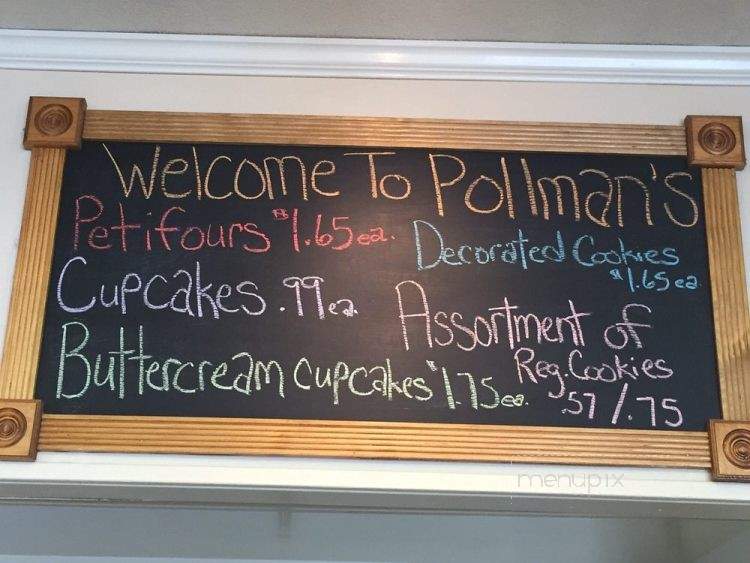 Welcome To Pollman's
Petifours $1.65 ea.
Decorated Cookies
$1.65 ea
Cupcakes .99 ea.
Assortment of
Reg. Cookies
.57 / .75
Buttercream cupcakes $1.75 ea.
menupix